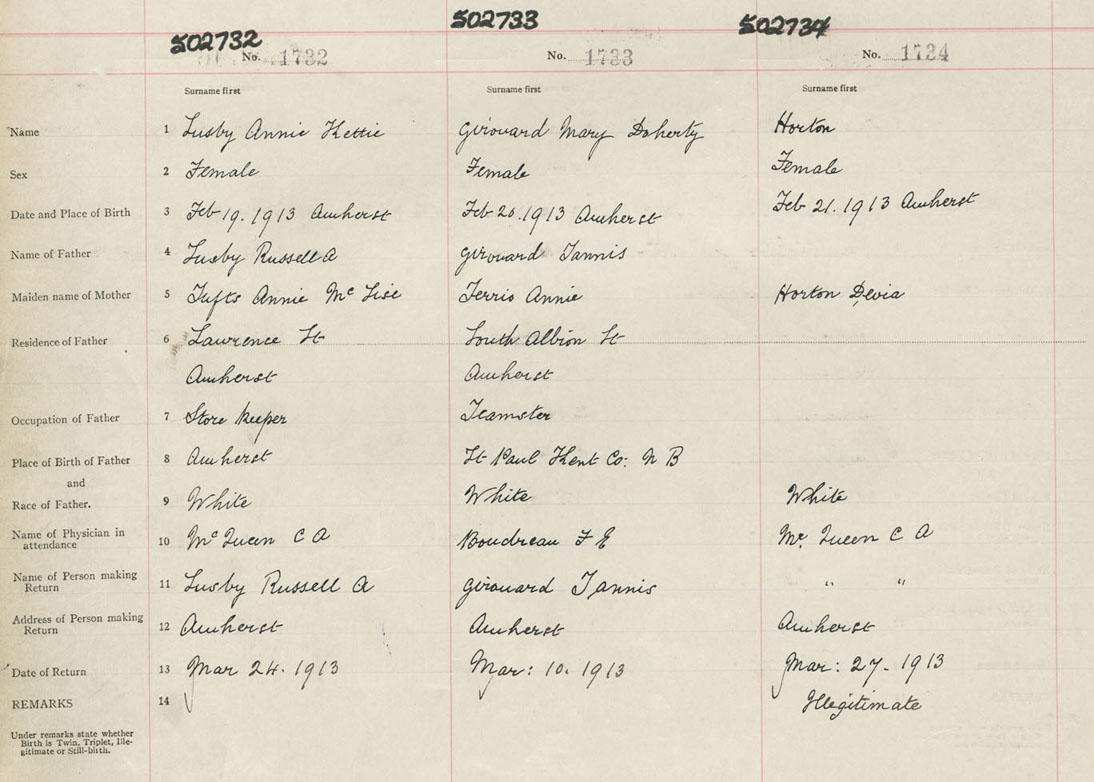 502732 502733 502734
No. 1732 No. 1733 No. 1734
Surname first Surname first Surname first
Name 1 Lusby Annie Hettie Girouard Mary Doherty Horton
Sex 2 Female Female Female
Date and Place of Birth 3 Feb 19. 1913 Amherst Feb 20. 1913 Amherst Feb 21. 1913 Amherst
Name of Father 4 Lusby Russell A Girouard Tannis
Maiden name of Mother 5 Tufts Annie Mc Terrio Annie Horton
Residence of Father 6 Lawrence St South Albion St
Amherst Amherst
Occupation of Father 7 Store Keeper Teamster
Place of Birth of Father 8 Amherst St Paul Kent Co: N B
and
Race of Father. 9 White White White
Name of Physician in
attendance 10 Mc Queen C A Boudreau F E Mc Queen C A
Name of Person making
Return 11 Lusby Russell A Girouard Tannis " "
Address of Person making
Return 12 Amherst Amherst Amherst
Date of Return 13 Mar 24. 1913 Mar: 10. 1913 Mar: 27. 1913
REMARKS 14 Illegitimate
Under remarks state whether
Birth is Twin, Triplet, Ille-
gitimate or Still-birth.